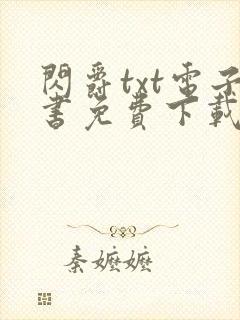 閃爵txt電子
書免費下載
秦嬤嬤